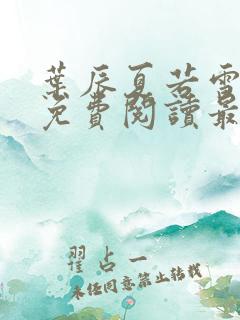 葉辰夏若雪
免費閱讀最
翟占一
未經同意禁止轉載